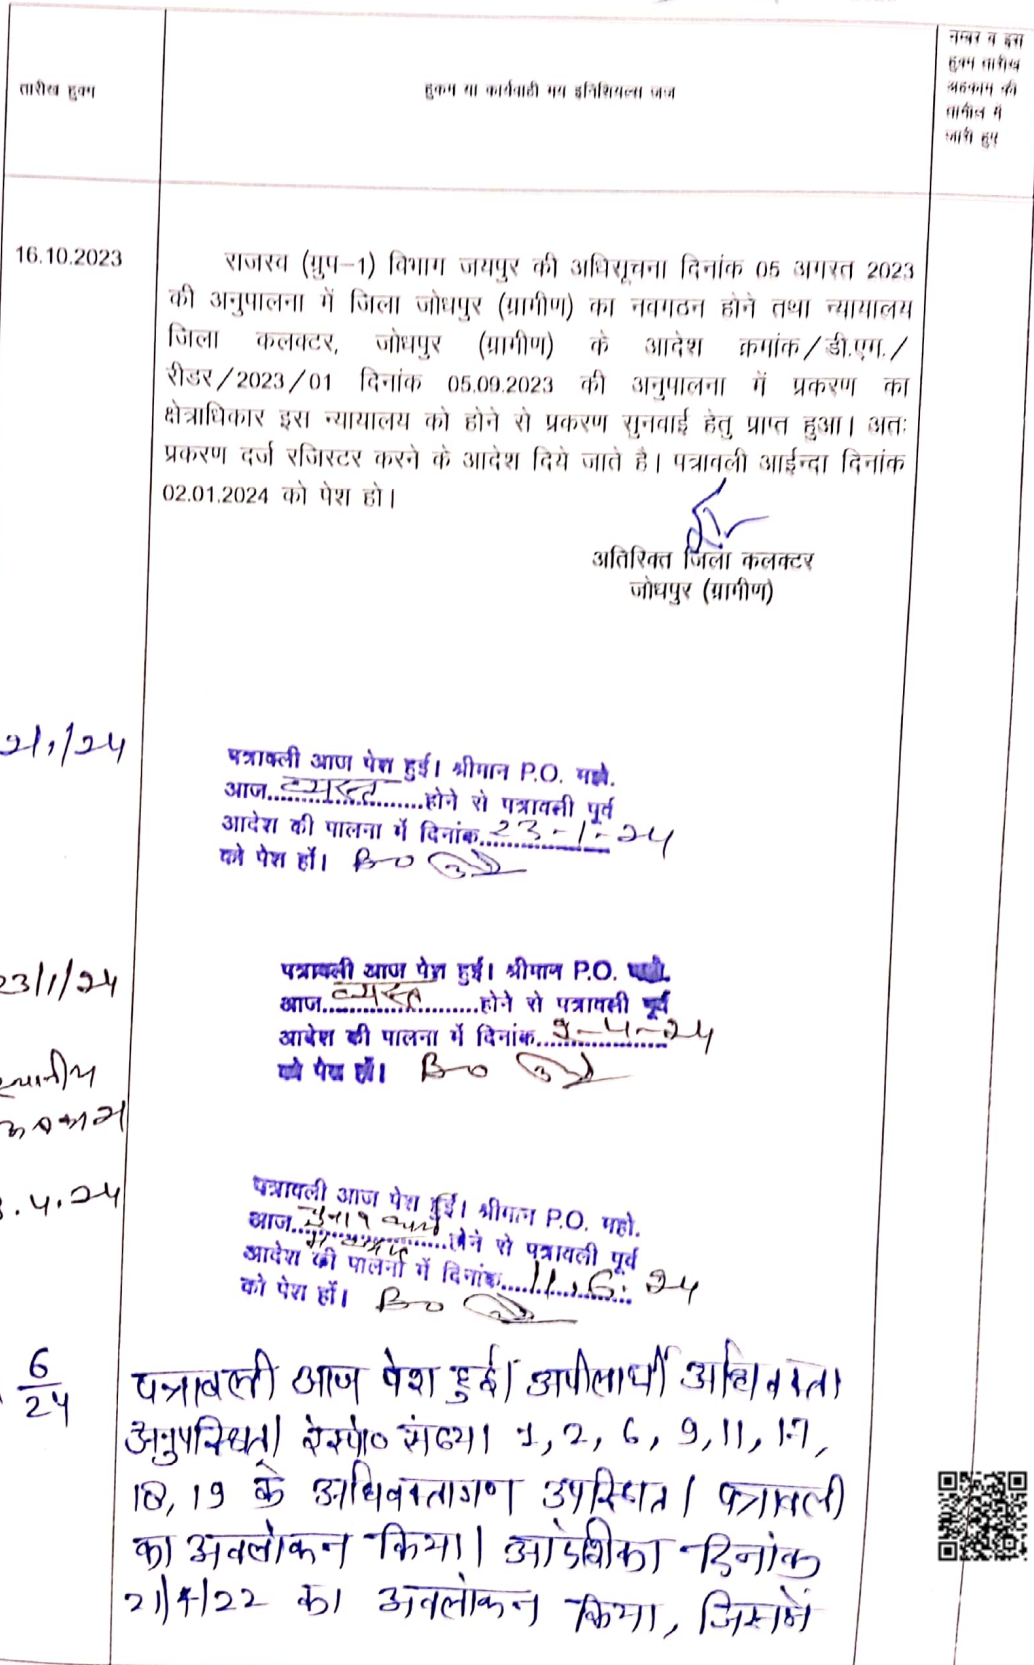 तारीख हुक्म
हुकम या कार्यवाही मय इनिशियल्स जज
नम्बर व इस
हुक्म तारीख
अहकाम की
तामील में
जारी हुए
16.10.2023
राजस्व (ग्रुप-1) विभाग जयपुर की अधिसूचना दिनांक 05 अगस्त 2023
की अनुपालना में जिला जोधपुर (ग्रामीण) का नवगठन होने तथा न्यायालय
जिला कलक्टर, जोधपुर (ग्रामीण) के आदेश क्रमांक/डी.एम./
रीडर/2023/01 दिनांक 05.09.2023 की अनुपालना में प्रकरण का
क्षेत्राधिकार इस न्यायालय को होने से प्रकरण सुनवाई हेतु प्राप्त हुआ। अतः
प्रकरण दर्ज रजिस्टर करने के आदेश दिये जाते है। पत्रावली आईन्दा दिनांक
02.01.2024 को पेश हो।
अतिरिक्त जिला कलक्टर
जोधपुर (ग्रामीण)
2/1/24
पत्रावली आज पेश हुई। श्रीमान P.O. महो.
आज व्यस्त होने से पत्रावली पूर्व
आदेश की पालना में दिनांक 23-1-24
को पेश हों।
23/1/24
पत्रावली आज पेश हुई। श्रीमान P.O. महो.
आज व्यस्त होने से पत्रावली पूर्व
आदेश की पालना में दिनांक 9-4-24
को पेश हों।
स्थानीय
अवकाश
.4.24
पत्रावली आज पेश हुई। श्रीमान P.O. महो.
आज चुनाव कार्य
में व्यस्त होने से पत्रावली पूर्व
आदेश की पालना में दिनांक 11.6.24
को पेश हों।
6/24
पत्रावली आज पेश हुई। अपीलार्थी अधिवक्ता
अनुपस्थित। रेस्पो० संख्या 1, 2, 6, 9, 11, 17,
18, 19 के अधिवक्तागण उपस्थित। पत्रावली
का अवलोकन किया। आदेशिका दिनांक
21/4/22 का अवलोकन किया, जिसमें